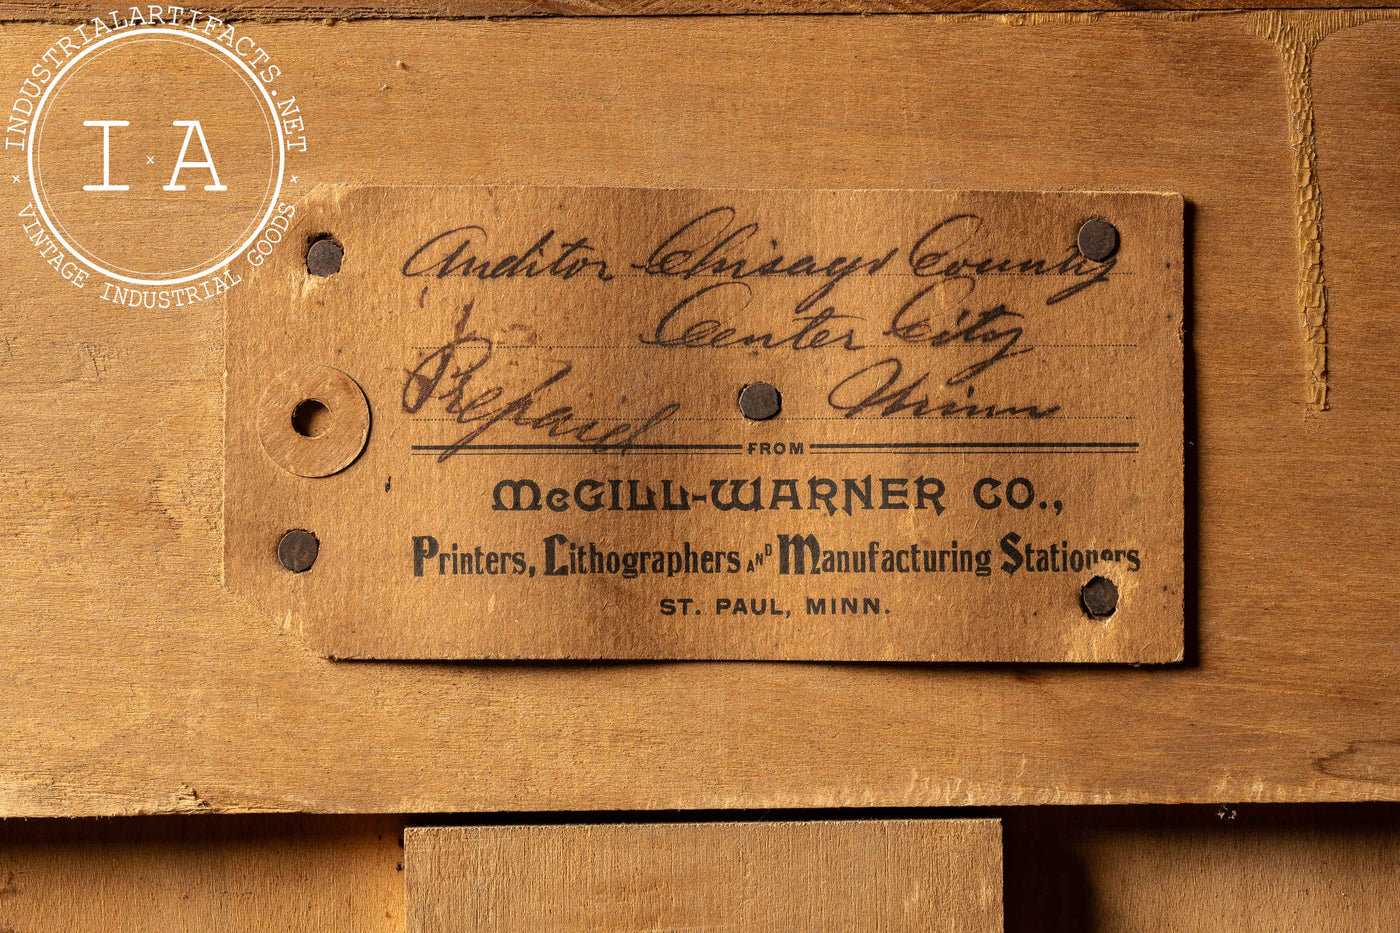 INDUSTRIALARTIFACTS.NET
I x A
VINTAGE INDUSTRIAL GOODS
Auditor Chisago County
Center City
Prepaid Minn
FROM
McGILL-WARNER CO.,
Printers, Lithographers AND Manufacturing Stationers
ST. PAUL, MINN.